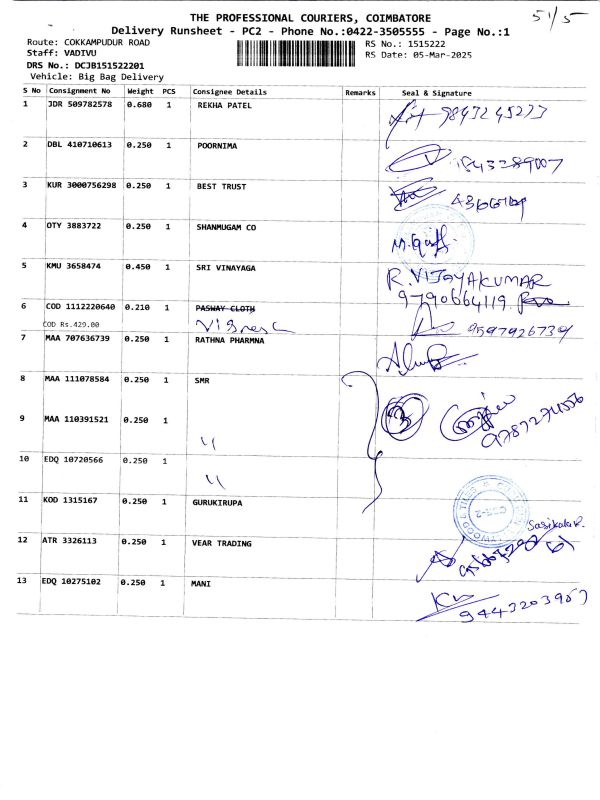 THE PROFESSIONAL COURIERS, COIMBATORE
51/5
Delivery Runsheet - PC2 - Phone No.:0422-3505555 - Page No.:1
Route: COKKAMPUDUR ROAD
RS No.: 1515222
Staff: VADIVU
RS Date: 05-Mar-2025
DRS No.: DCJB151522201
Vehicle: Big Bag Delivery
S No Consignment No Weight PCS Consignee Details Remarks Seal & Signature
1 JDR 509782578 0.680 1 REKHA PATEL 9843245233
2 DBL 410710613 0.250 1 POORNIMA
3 KUR 3000756298 0.250 1 BEST TRUST
4 OTY 3883722 0.250 1 SHANMUGAM CO
5 KMU 3658474 0.450 1 SRI VINAYAGA R. VIJAYAKUMAR
9790664119
6 COD 1112220640 0.210 1 PASWAY CLOTH
COD Rs.429.00 9597926739
7 MAA 707636739 0.250 1 RATHNA PHARMNA
8 MAA 111078584 0.250 1 SMR
9 MAA 110391521 0.250 1 〃 9787271556
10 EDQ 10720566 0.250 1 〃
11 KOD 1315167 0.250 1 GURUKIRUPA
Sasikala R.
12 ATR 3326113 0.250 1 VEAR TRADING
13 EDQ 10275102 0.250 1 MANI
9443203957